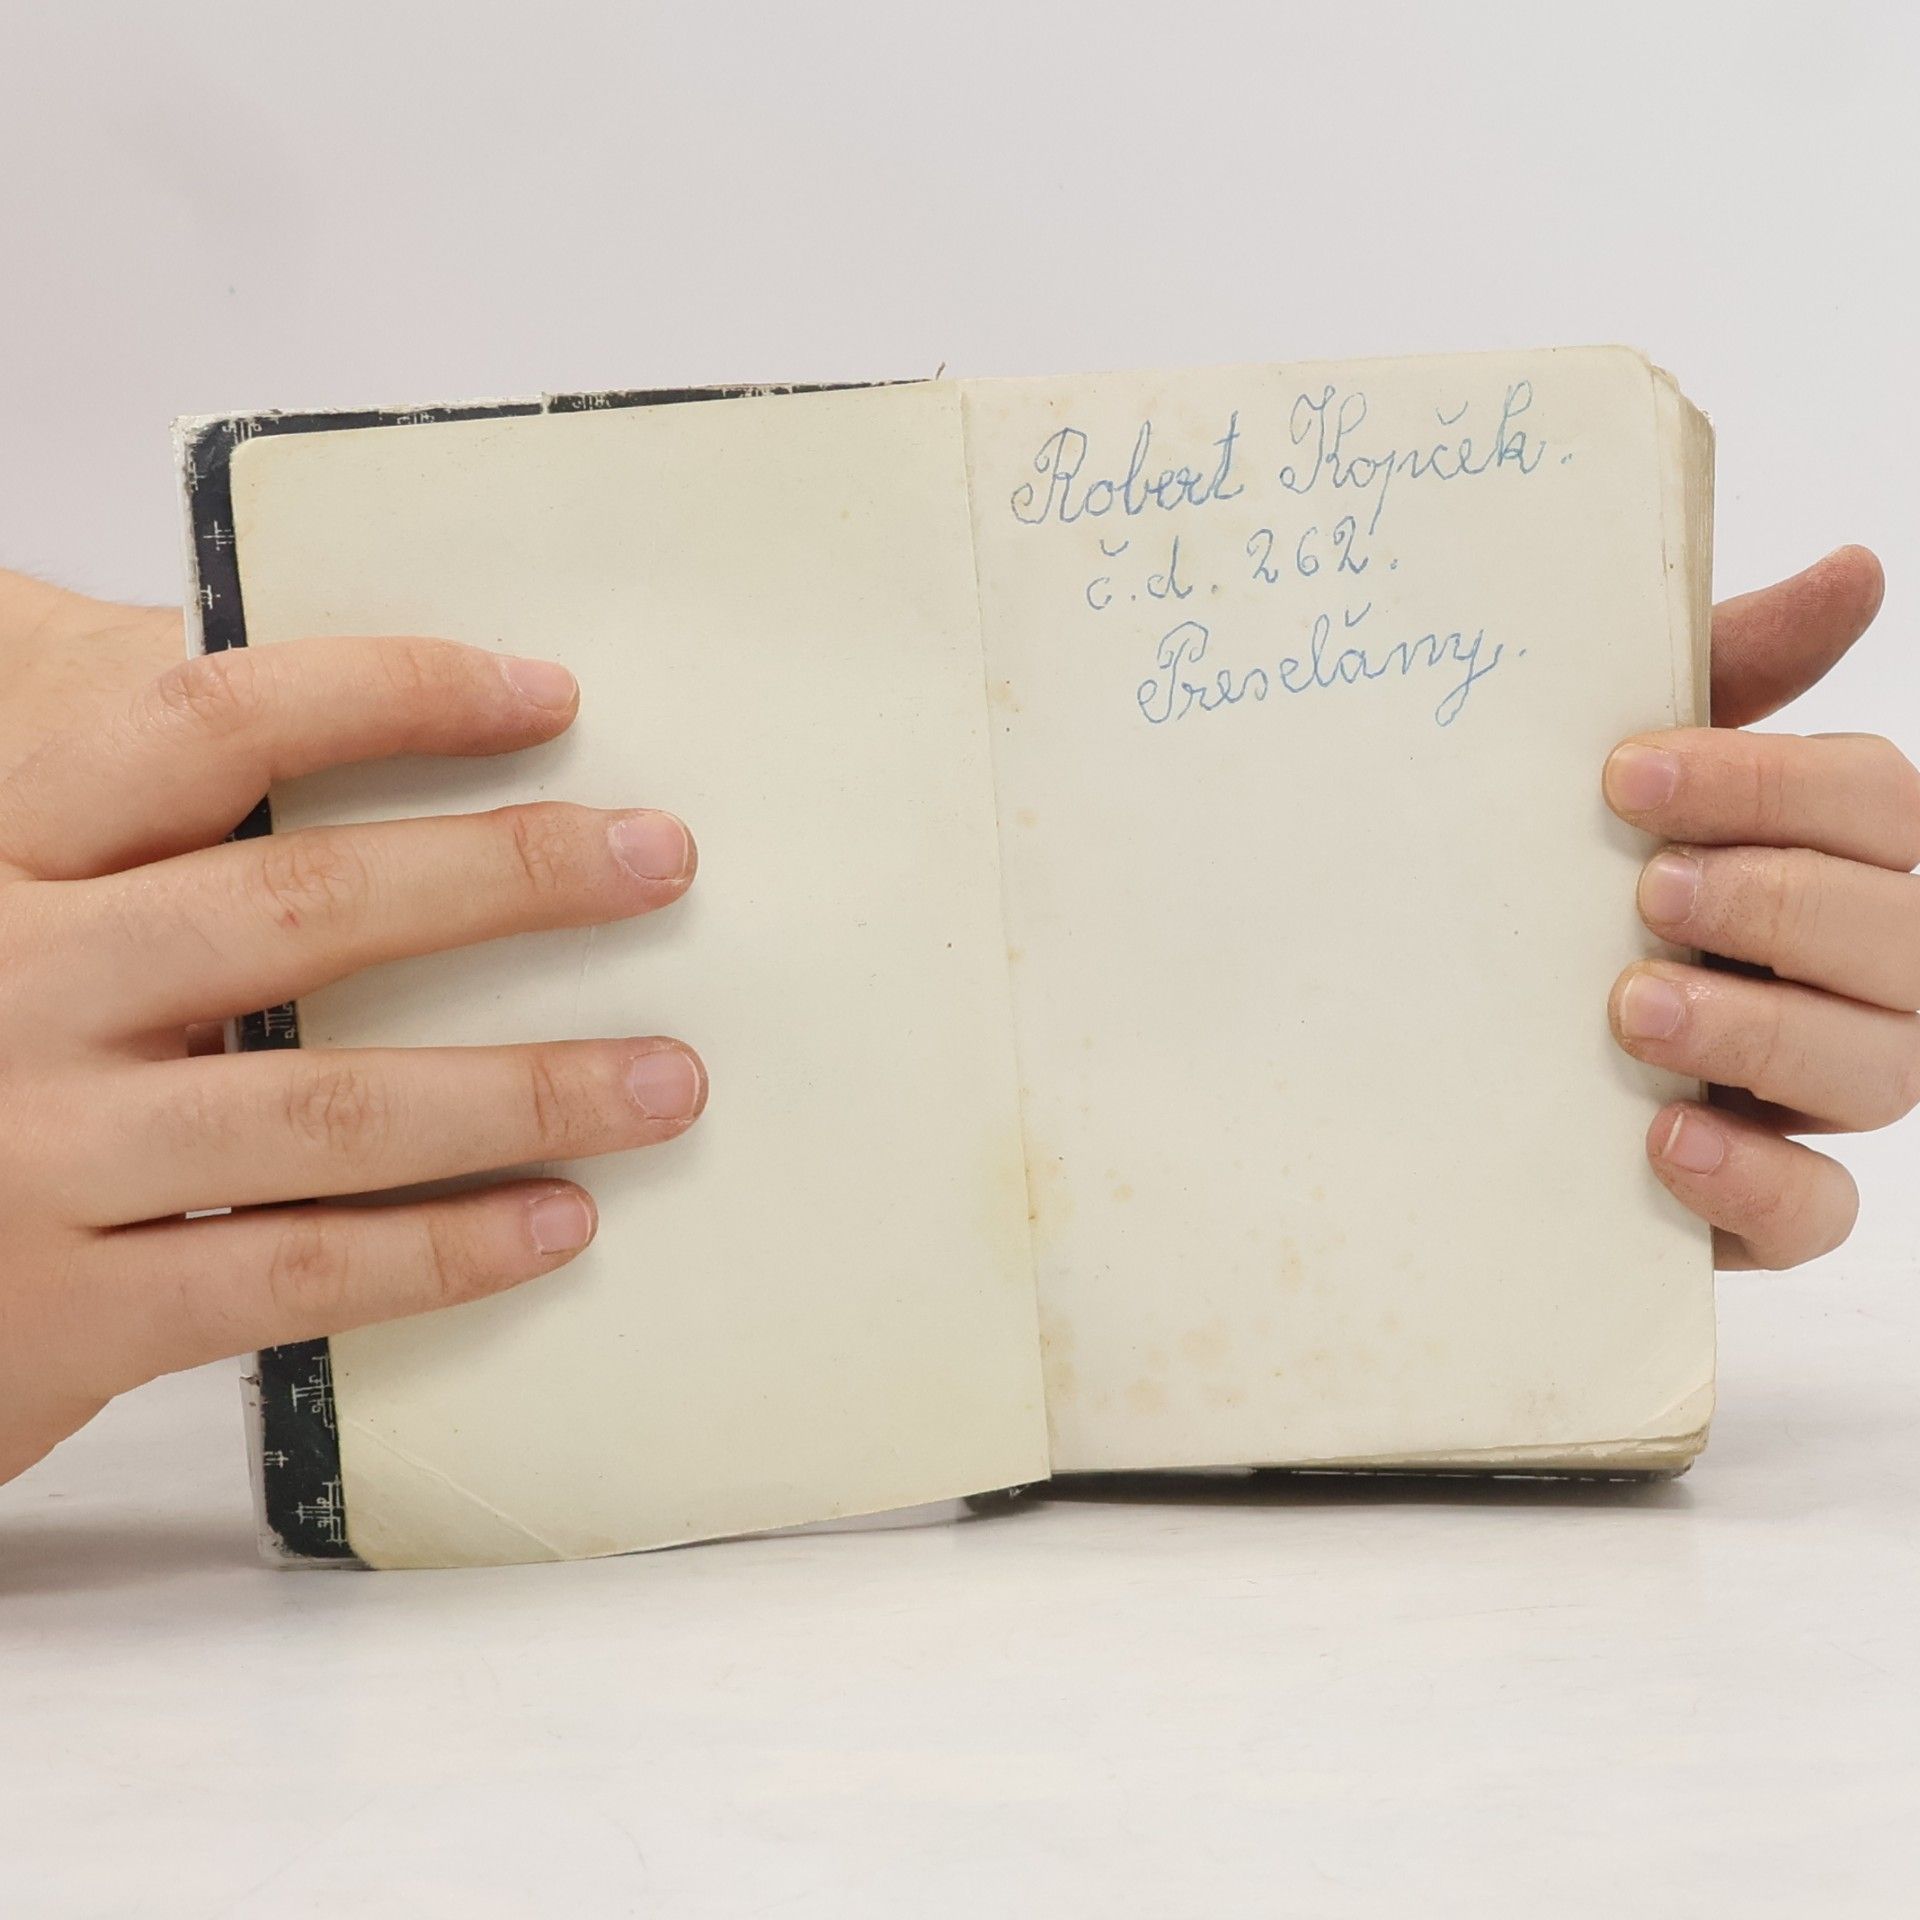 Robert Kopček.
č.d. 262.
Preselǎny.